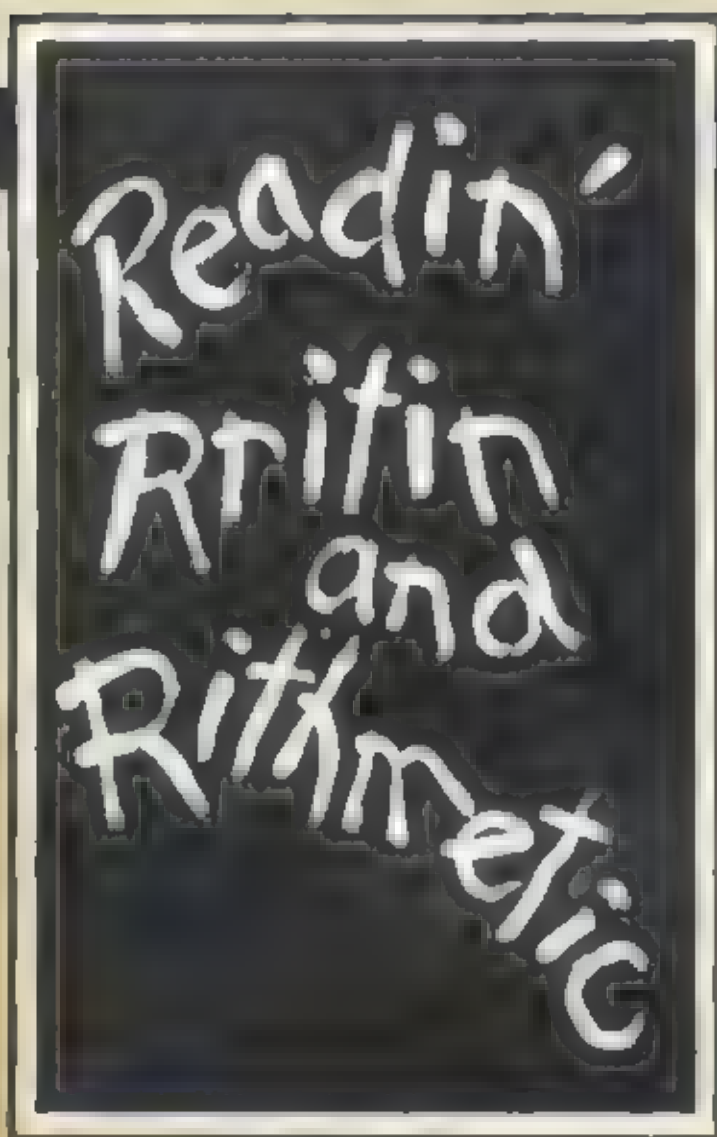 Readin'
Rritin
and
Rithmetic